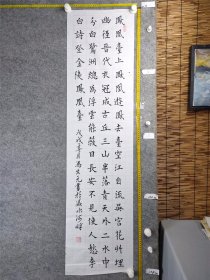 鳳凰臺上鳳凰遊鳳去臺空江自流吳宮花草埋
幽徑晉代衣冠成古丘三山半落青天外二水中
分白鷺洲總為浮雲能蔽日長安不見使人愁李
白詩登金陵鳳凰臺